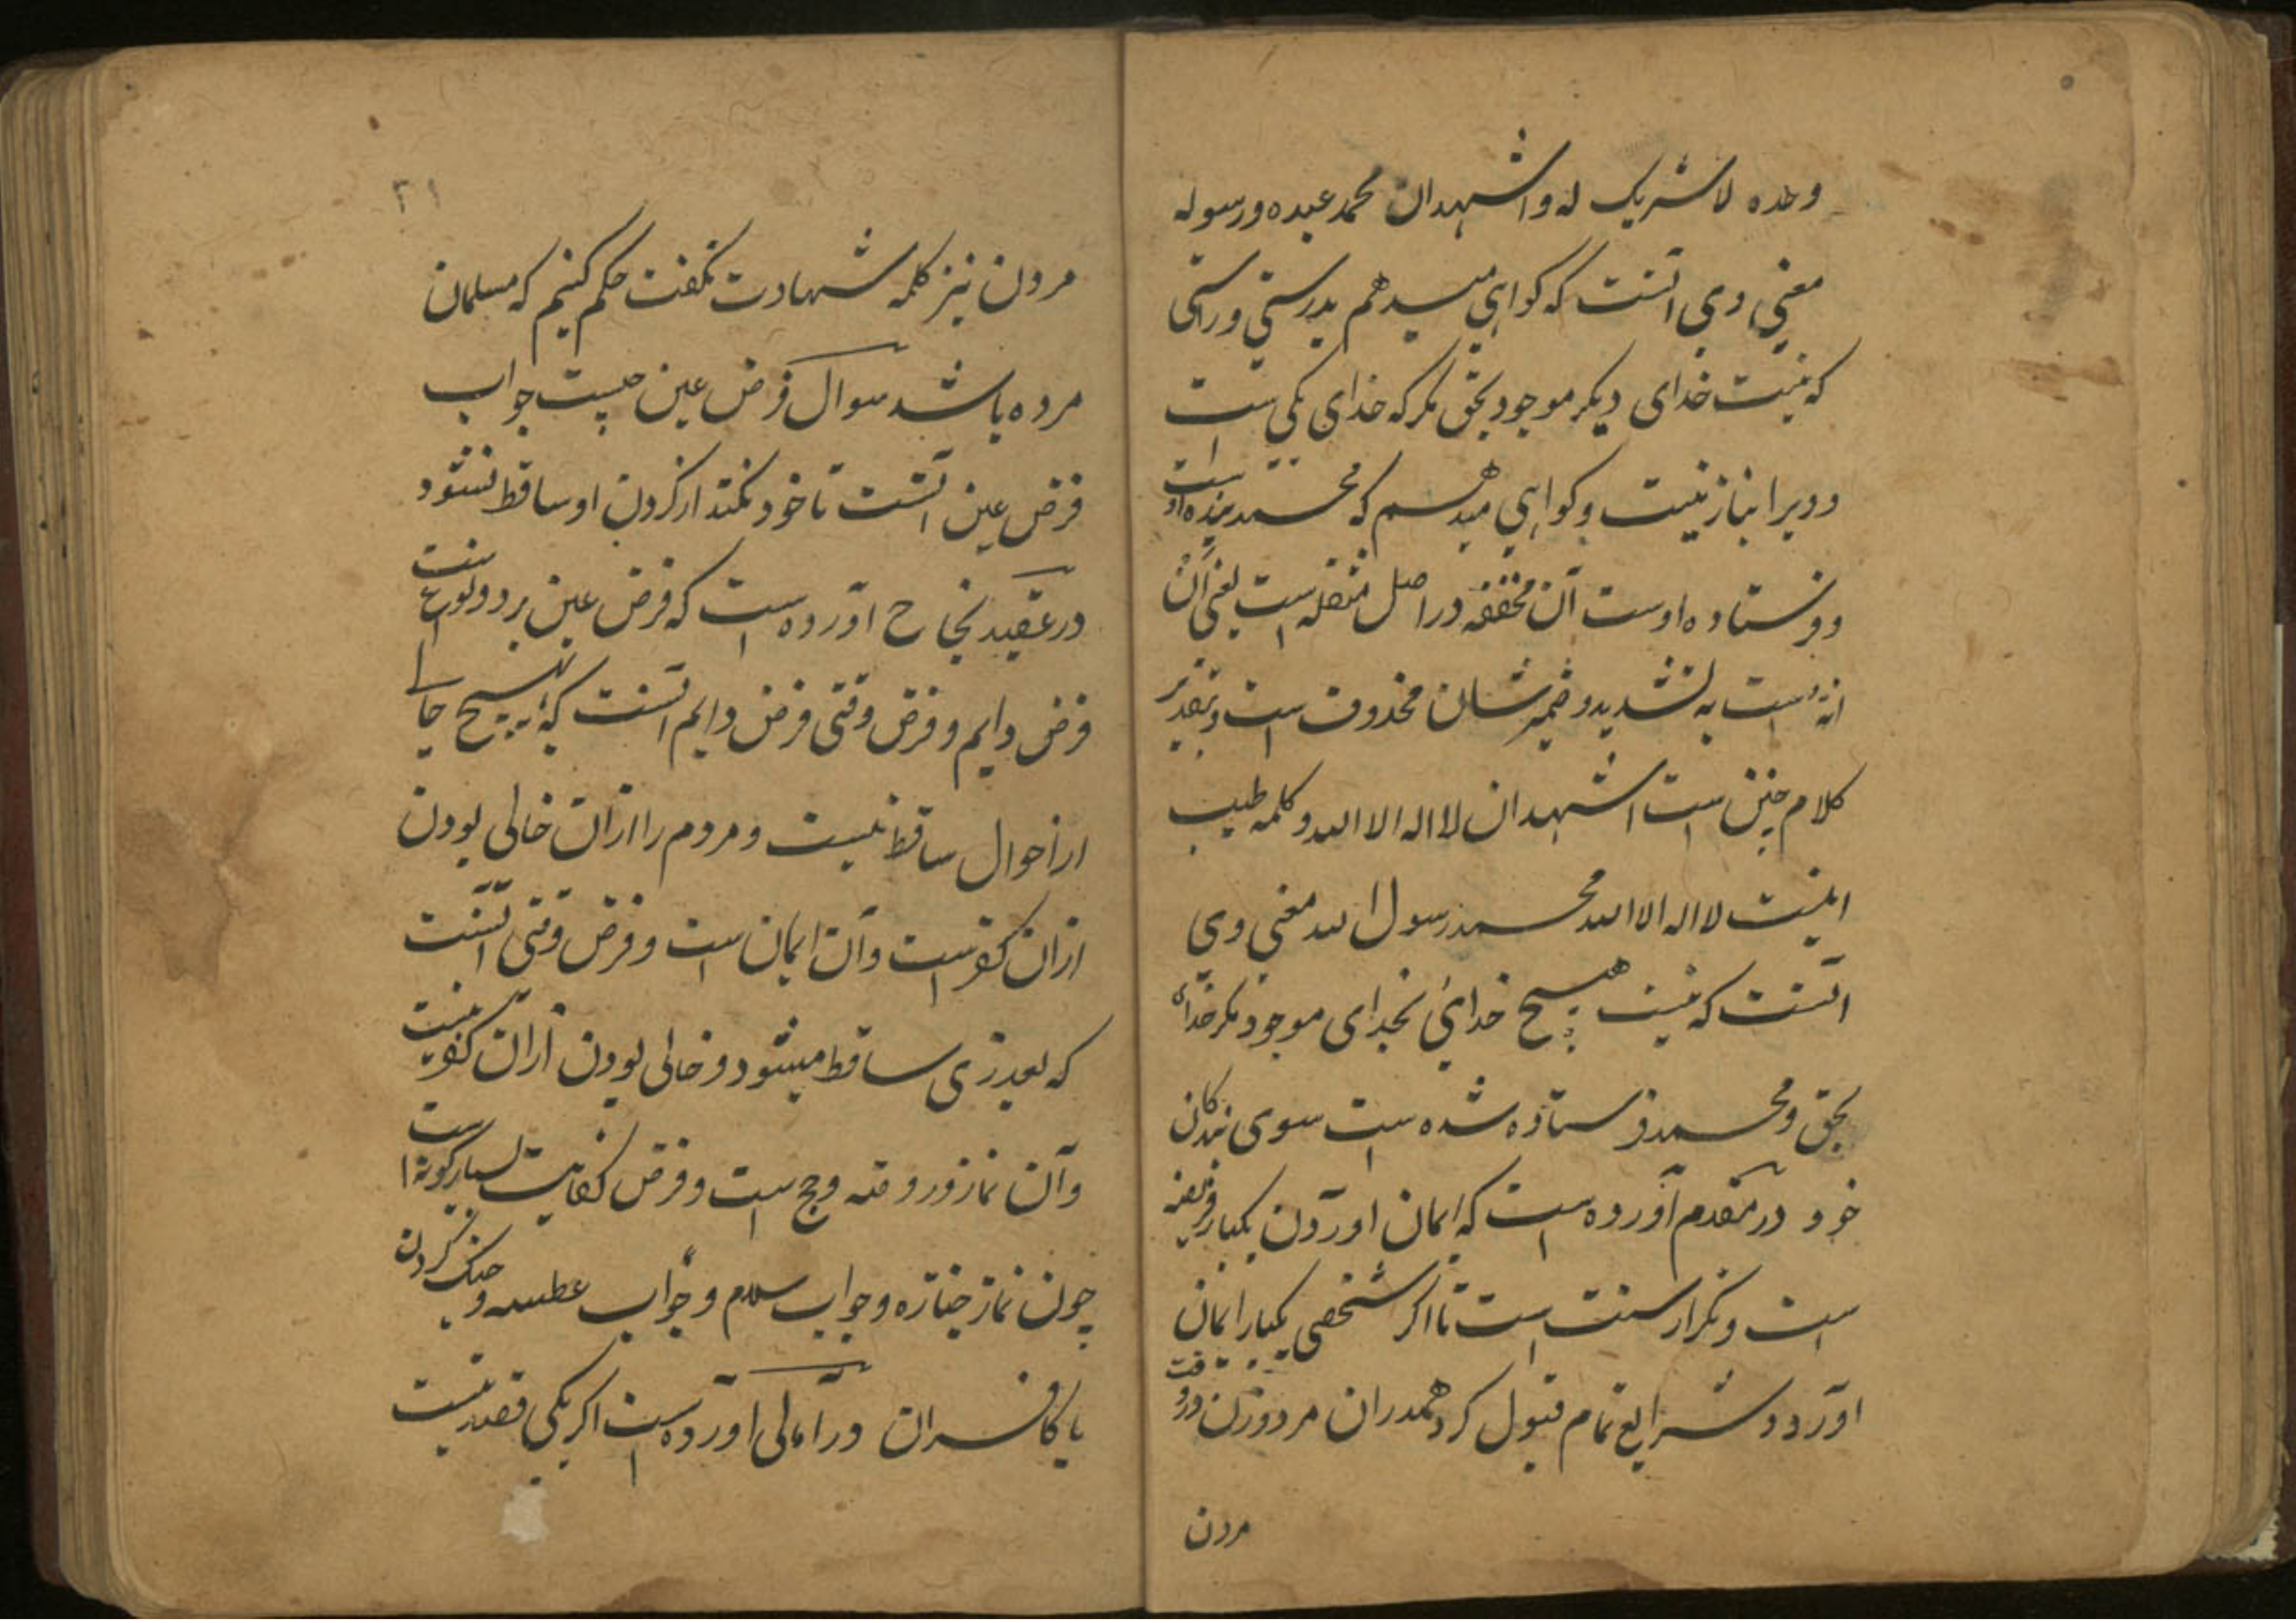 وحده لا شریک له و اشهد ان محمد عبده و رسوله
معنی وی آنست که کواهی میدهم بدرستی و راستی
که نیست خدای دیکر موجود بحق مکر که خدای یکی است
و ویرا انباز نیست و کواهی میدهم که محمد بنده اوست
و فرستاده اوست آن مخففه در اصل مثقله است یعنی آن
انه است به تشدید و ضمیر شان محذوف است و تقدیر
کلام چنین است اشهد ان لا اله الا الله و کلمه طیب
اینست لا اله الا الله محمد رسول الله معنی وی
آنست که نیست هیچ خدایی بخدای موجود مکر خدای
بحق و محمد فرستاده شده است سوی بندکان
خود در مقدم آورده است که ایمان اوردن یکبار فریضه
است و تکرار سنت است تا اکر شخصی یکبار ایمان
اورد و شرایع تمام قبول کرد همدران مرد و زن در وقت
مردن
۲۱
مردن نیز کلمه شهادت نکفت حکم کنیم که مسلمان
مرده باشد سوال فرض عین چیست جواب
فرض عین آنست تا خود نکند از کردن او ساقط نشود
در عقیده نجاح آورده است که فرض عین بر دو نوع است
فرض دایم و فرض وقتی فرض دایم آنست که بهیچ حالی
از احوال ساقط نیست و مردم را ازان خالی بودن
ازان کفر است و آن ایمان است و فرض وقتی آنست
که بعذری ساقط میشود و خالی بودن ازان کفر نیست
و آن نماز و روزه و حج است و فرض کفایت بسیار کونه است
چون نماز جنازه و جواب سلام و جواب عطسه و جنک کردن
با کافران در آمالی آورده است اکر یکی قصد نیست